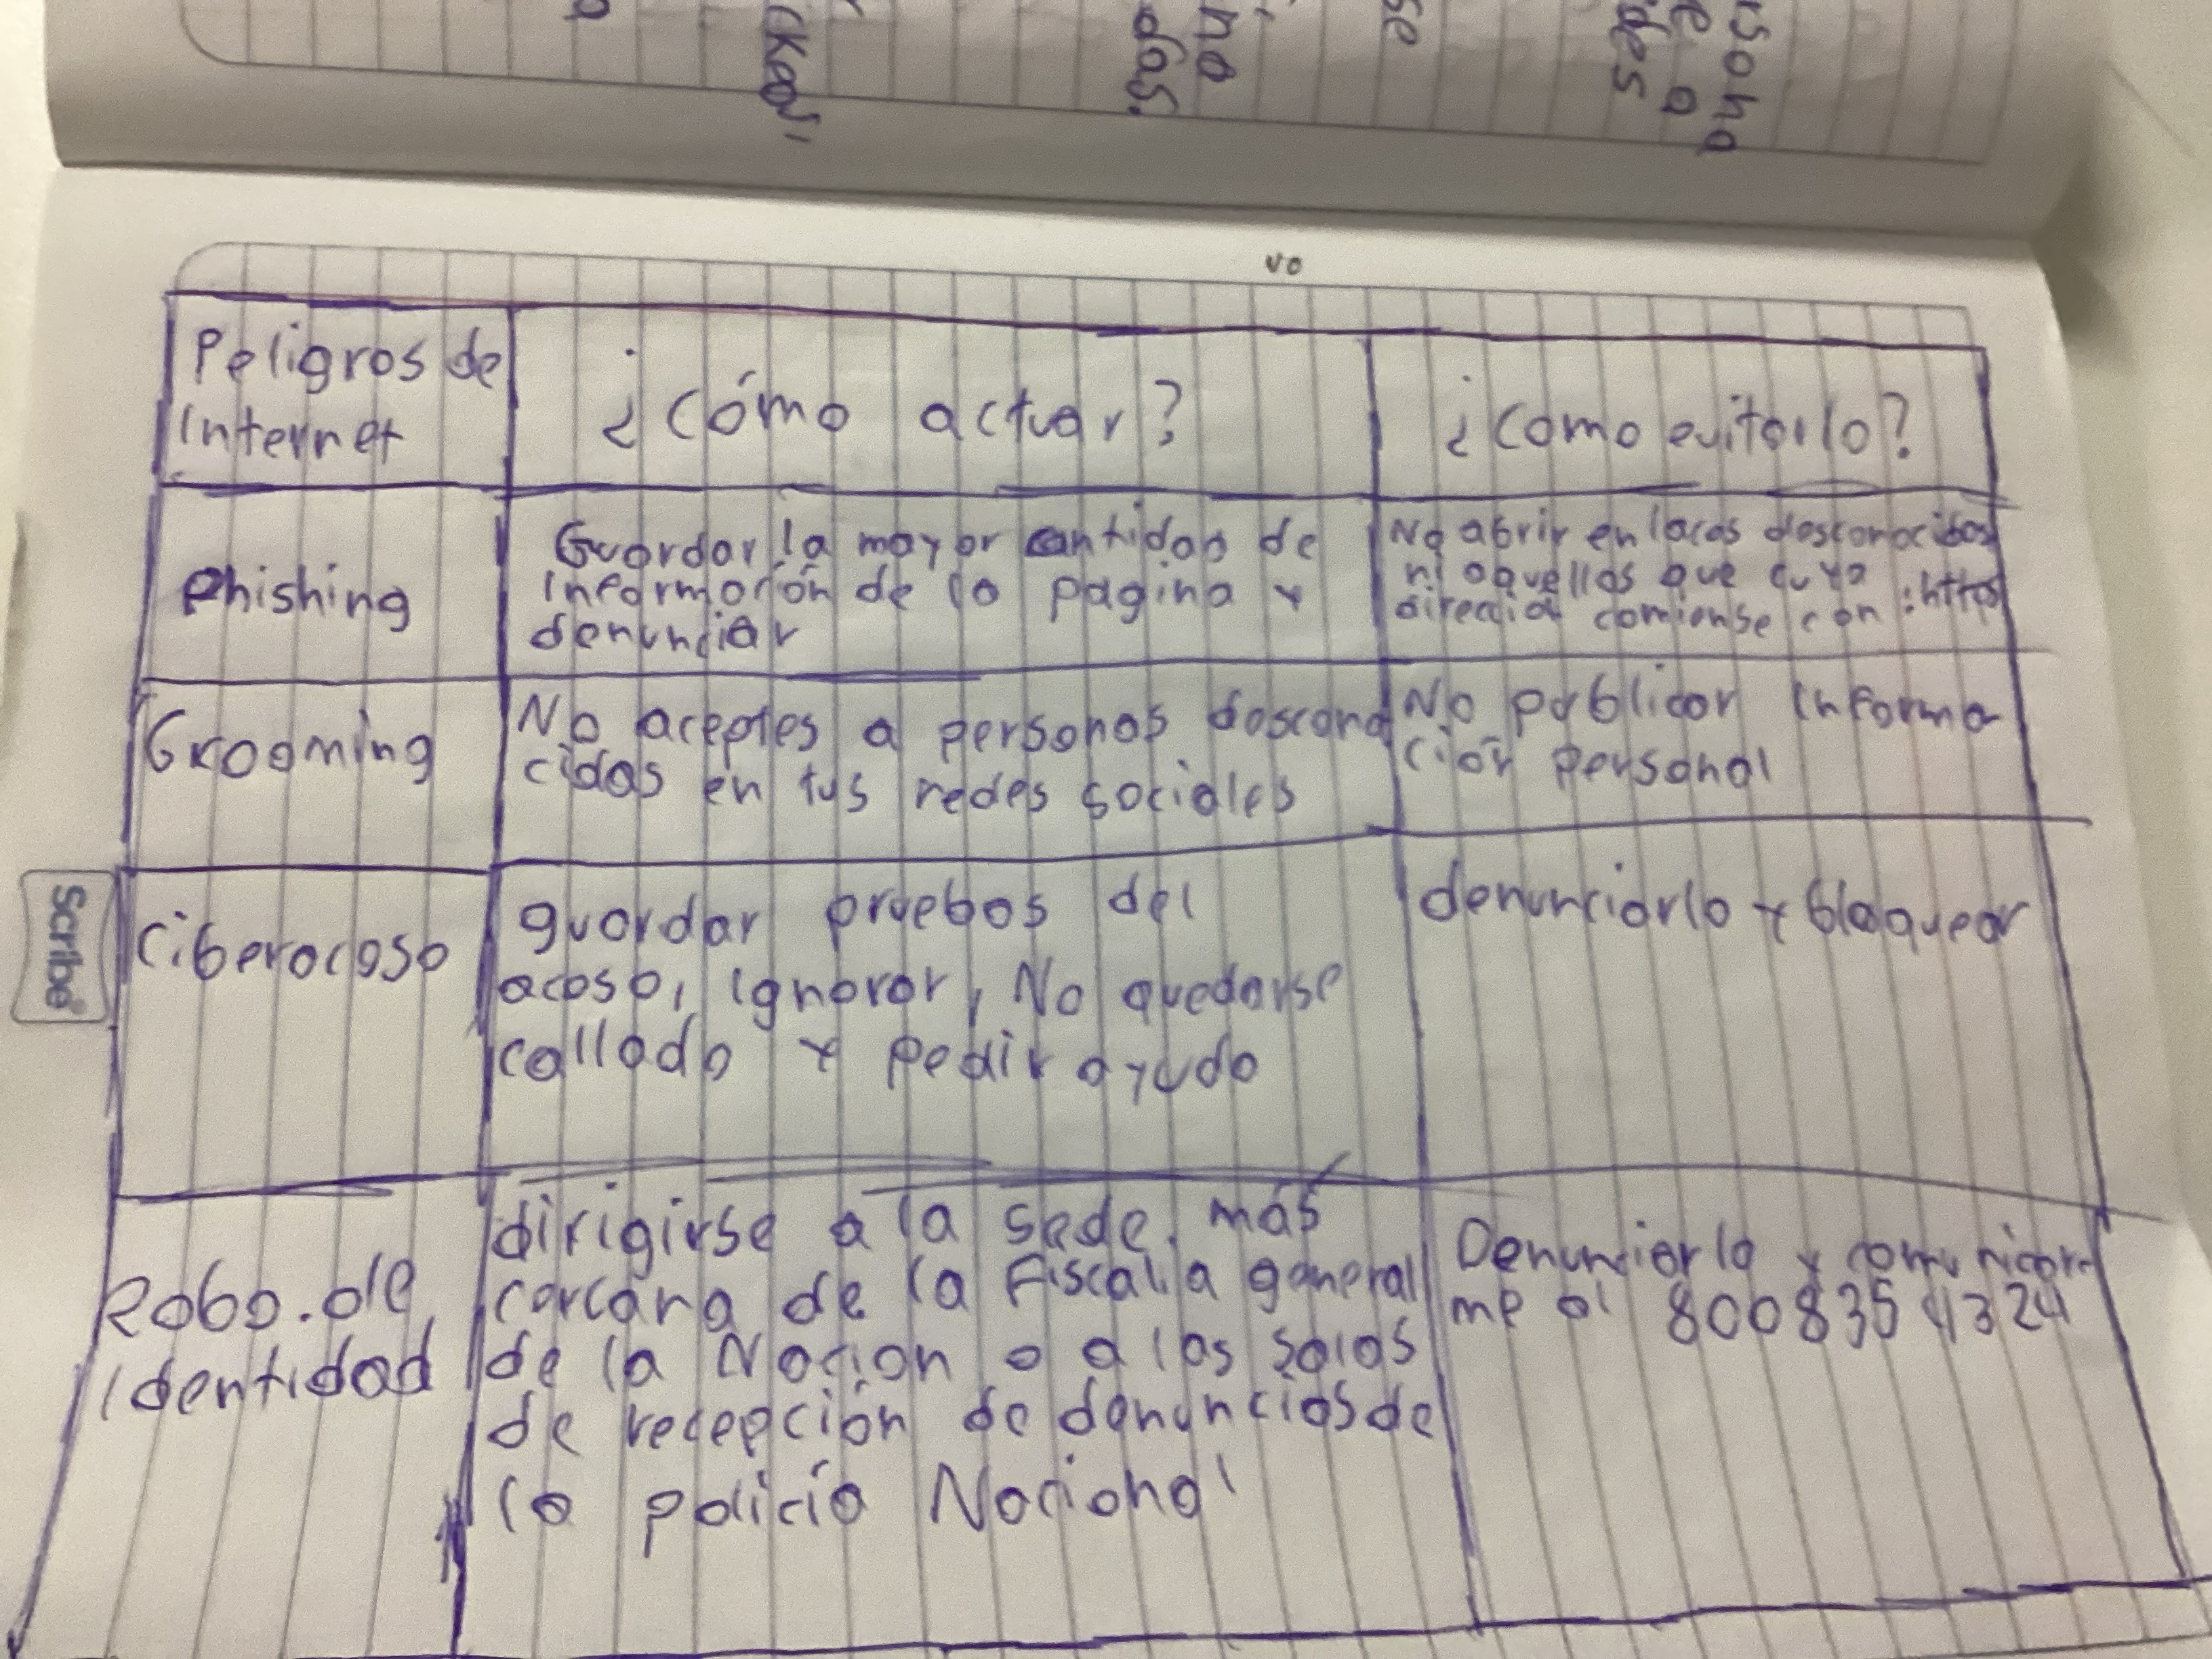 vo
Peligros de
Internet
¿Cómo actuar?
¿Como evitarlo?
Phishing
Guardar la mayor cantidad de
información de la pagina y
denunciar
No abrir enlaces desconocidos
ni aquellas que cuya
comiense con :https
Grooming
No aceptes a personas descono
cidas en tus redes sociales
No publicar informa
ción personal
Ciberacoso
guardar pruebas del
acoso, ignorar, No quedarse
callado y pedir ayuda
denunciarlo y bloquear
Robo.de
Identidad
dirigirse a la sede más
cercana de la Fiscalia general
de la Nacion o a las salas
de recepción de denuncias de
la policía Nacional
Denunciarlo y comunicar
me al 800835 4324
Scribe